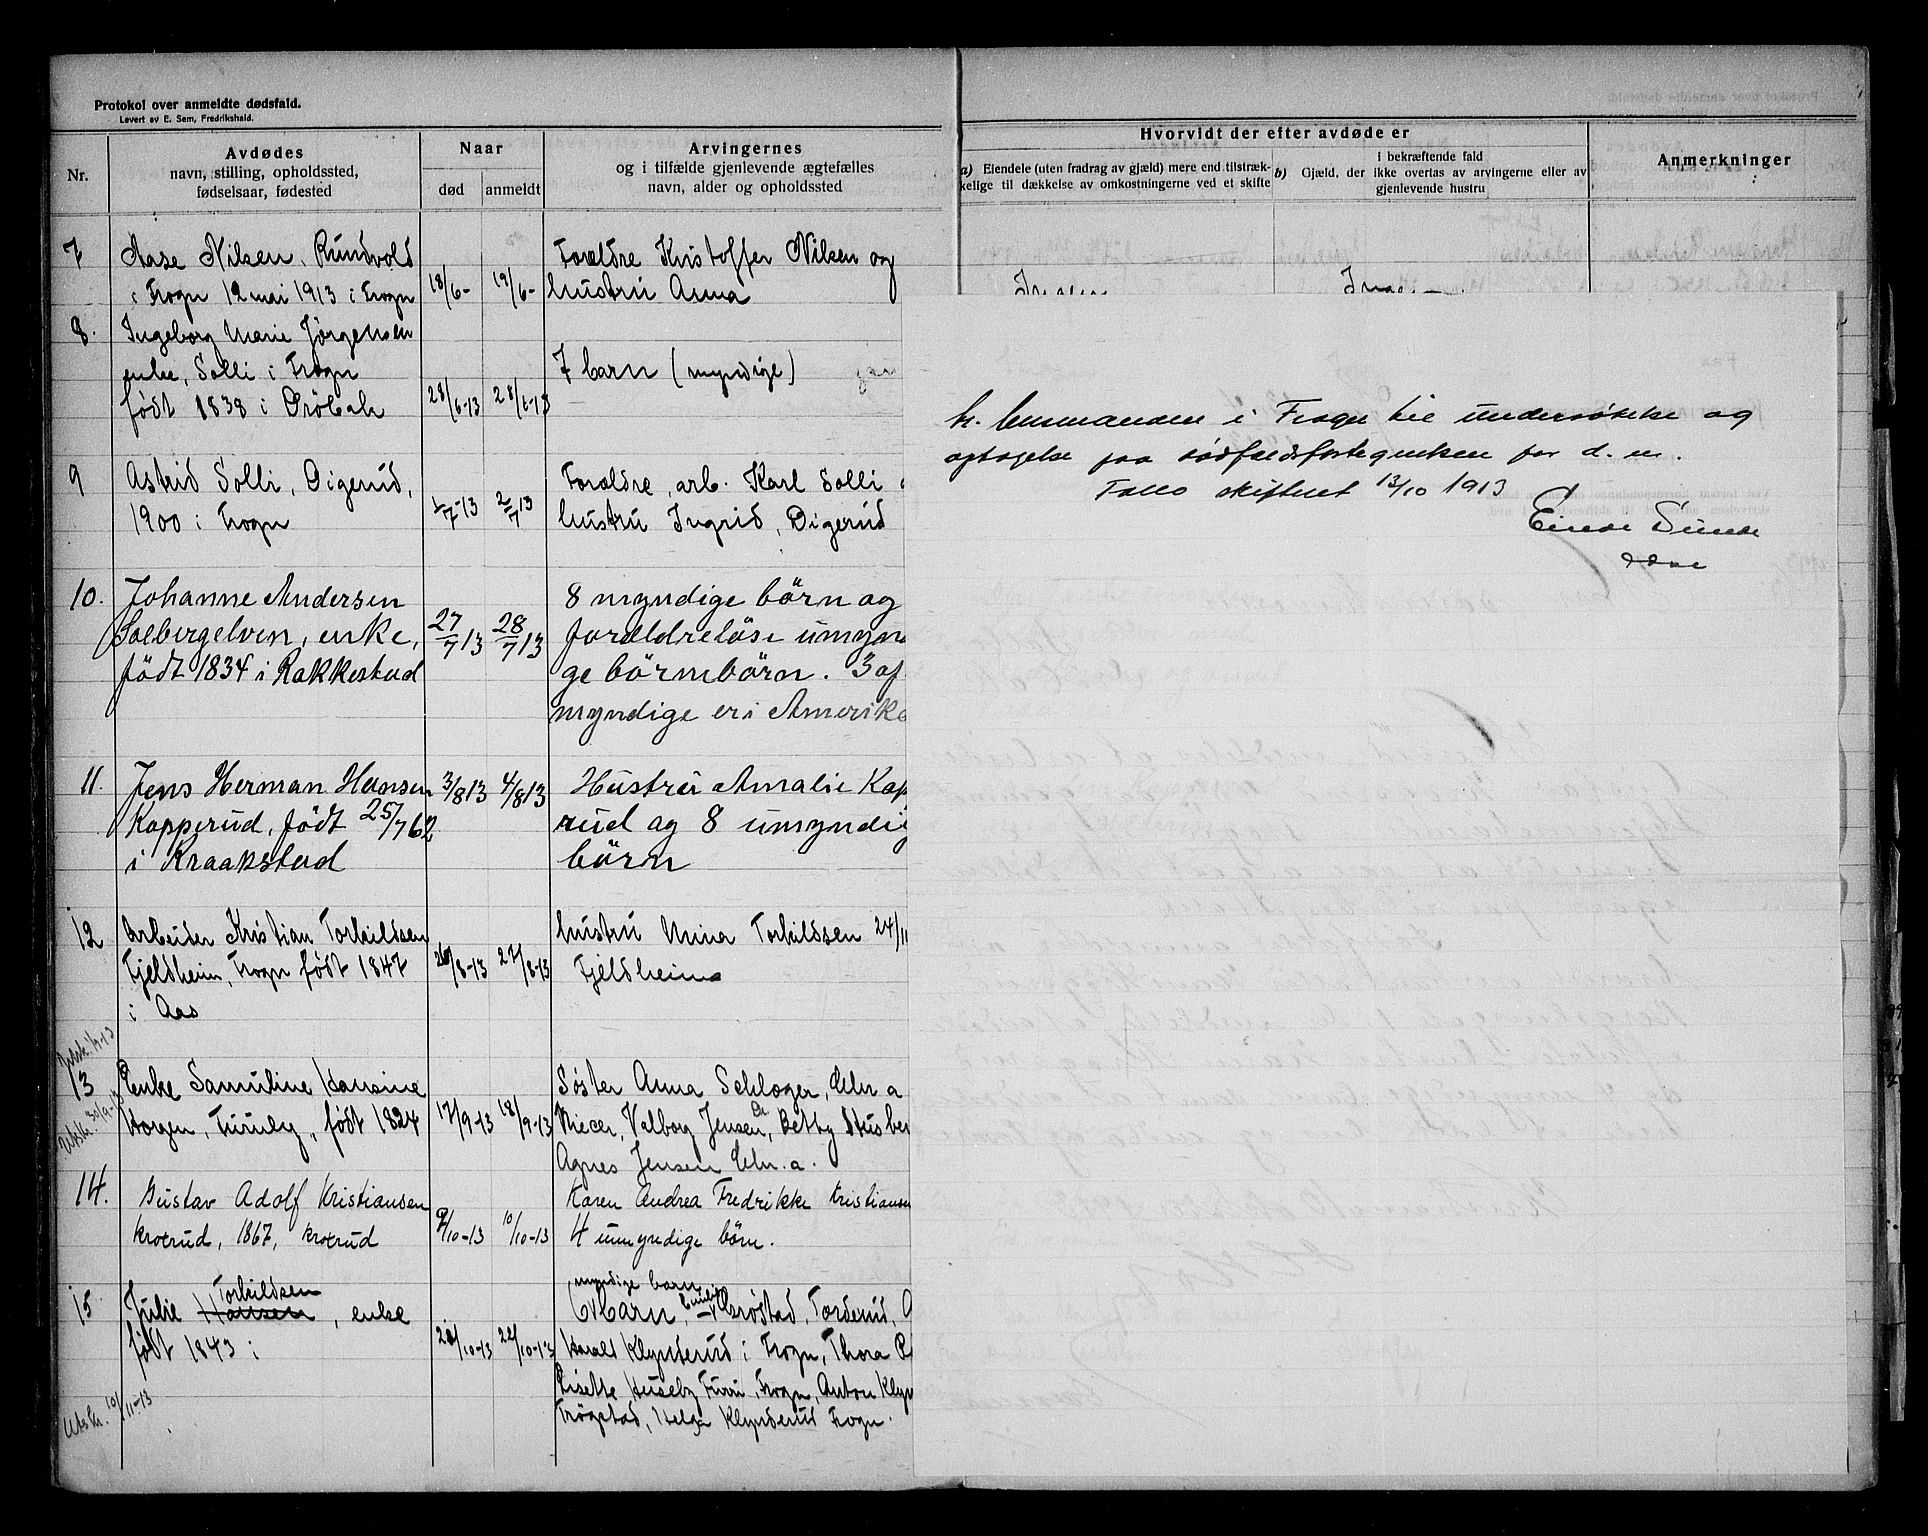 Protokol over anmeldte dødsfald.
Levert av E. Sem, Fredrikshald.
Nr.
Avdødes
navn, stilling, opholdssted,
fødselsaar, fødested
Naar
død
anmeldt
Arvingernes
og i tilfælde gjenlevende ægtefælles
navn, alder og opholdssted
Hvorvidt der efter avdøde er
a) Eiendele (uten fradrag av gjæld) mere end tilstræk-
kelige til dækkelse av omkostningerne ved et skifte
i bekræftende fald
b) Gjæld, der ikke overtas av arvingerne eller av
gjenlevende hustru
Anmerkninger
7 Aase Nilsen, Rundvold
i Frogn 12 mai 1913 i Frogn
18/6- 19/6-
Forældre Kristoffer Nilsen og
hustru Anna
Ingen
8. Ingeborg Marie Jørgensen
enke, Solli i Frogn
født 1838 i Drøbak
28/6-13 28/6-13
7 barn (myndige)
9 Astrid Solli, Digerud,
1900 i Frogn
1/7-13 2/7 13
Forældre, arb. Karl Solli
hustru Ingrid, Digerud
10. Johanne Andersen
Solbergelven, enke,
født 1834 i Rakkestad
27/7 13 28/7 13
8 myndige börn og
foraldrelöse umyn
ge börnebörn. 3 af
myndige er i Amerika
11. Jens Herman Hansen
Kopperud, født 25/7 62
i Kraakstad
3/8 13 4/8 13
Hustru Amalie Kop
rud og 8 umyndi
börn
12 Arbeider Kristian Torkildsen
Fjeldheim, Frogn født 1847
i Aas
26/8-13 27/8-13
hustru Mina Torkildsen 24/11
Fjeldheim
13 Enke Samuline Hansine
Horgen, Furuly, født 1824
Utskr. 30/9-13
17/9-13 18/9-13
Søster Anna Schloger, Chr. a
Niecer, Valborg Jensen, Betty
Agnes Jensen Chr. a.
14. Gustav Adolf Kristiansen
Krokrud, 1867, Krokrud
9/10-13 10/10-13
Karen Andrea Fredrikke Kristiansen
4 umyndige börn.
15 Julie Hansen Torkildsen, enke
født 1843 i
22/10-13
myndige barn
6 Barn,
Harald Klynderud i Frogn, Thora
Lisette Huseby Furri, Frogn, Anton Klyn
Trøgstad, Helga Klynderud Frogn.
Utskr. 10/11-13
hr. lensmanden i Frogn til undersøkelse og
optagelse paa dødsfaldsfortegnelsen for d. m.
Follo skifteret 13/10 1913
Einar Sunde